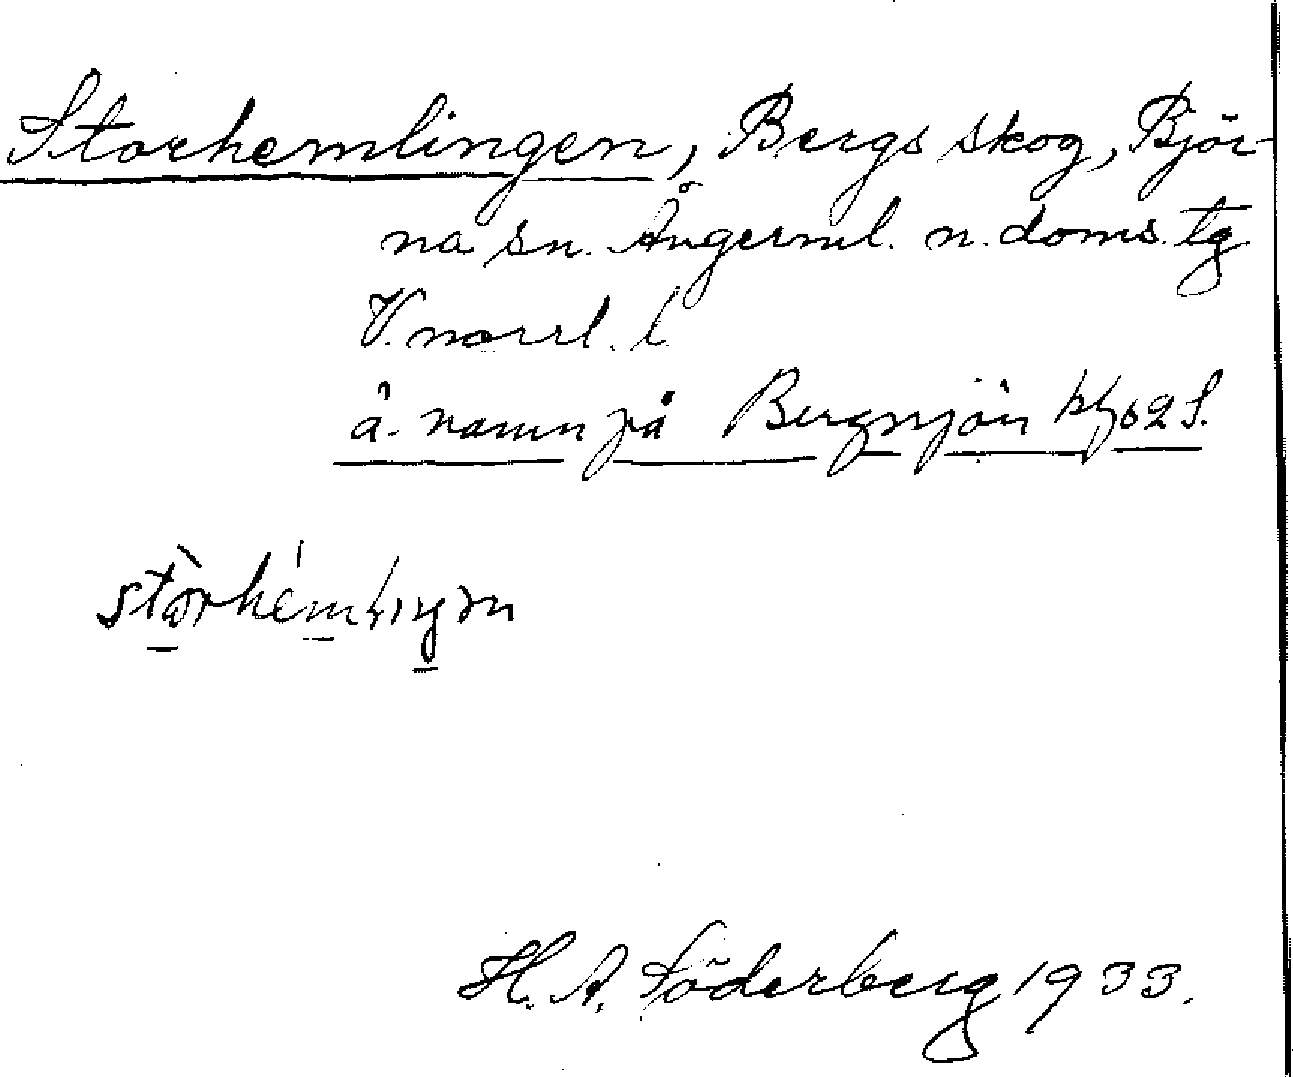 Storhemlingen, Bergs skog, Björ-
na sn. Ångerml. n. doms. tg
V. norrl. l.
a. namn på Bergsjön bl. 62 S.
H. A. Söderberg 1933.